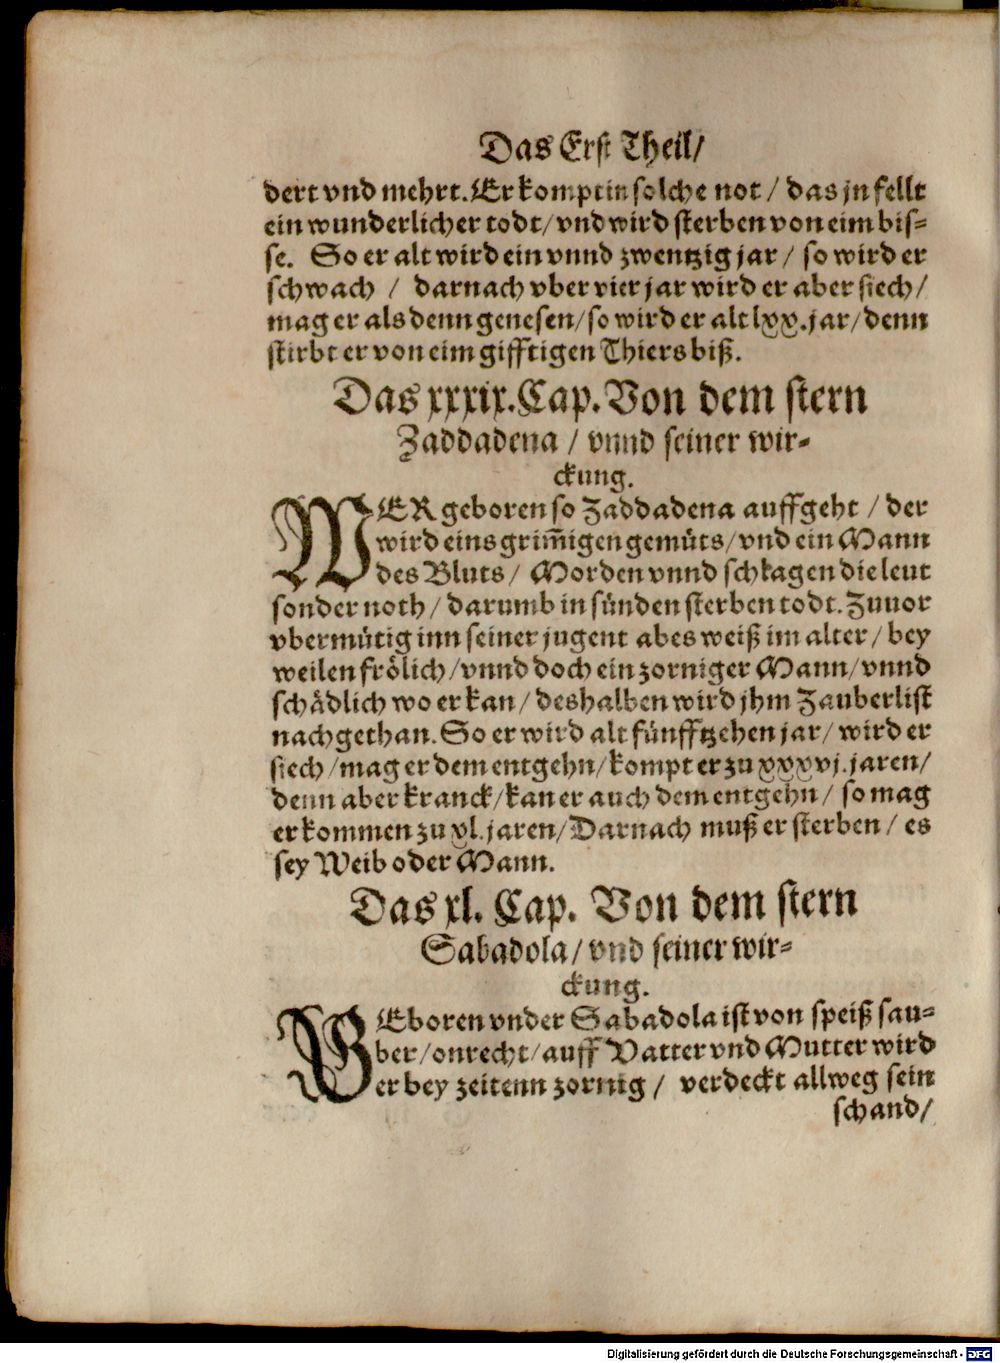 Das Erst Theil/
dert vnd mehrt. Er kompt in solche not / das jn fellt
ein wunderlicher todt/ vnd wird sterben von eim bis⸗
se. So er alt wird ein vnnd zwentzig jar / so wird er
schwach / darnach vber vier jar wird er aber siech/
mag er als denn genesen/ so wird er alt lxx. jar/ denn
stirbt er von eim gifftigen Thiers biß.
Das xxxix. Cap. Von dem stern
Zaddadena / vnnd seiner wir⸗
ckung.
WER geboren so Zaddadena auffgeht / der
wird eins grim̃igen gemüts/ vnd ein Mann
des Bluts / Morden vnnd schlagen die leut
sonder noth/ darumb in sünden sterben todt. Zuuor
vbermütig inn seiner jugent abes weiß im alter/ bey
weilen frölich/ vnnd doch ein zorniger Mann/ vnnd
schädlich wo er kan/ deshalben wird jhm Zauberlist
nachgethan. So er wird alt fünfftzehen jar/ wird er
siech/ mag er dem entgehn/ kompt er zu xxxvj. jaren/
denn aber kranck/ kan er auch dem entgehn/ so mag
er kommen zu xl. jaren/ Darnach muß er sterben/ es
sey Weib oder Mann.
Das xl. Cap. Von dem stern
Sabadola/ vnd seiner wir⸗
ckung.
GEboren vnder Sabadola ist von speiß sau⸗
ber/ onrecht/ auff Vatter vnd Mutter wird
er bey zeitenn zornig / verdeckt allweg sein
schand/
Digitalisierung gefördert durch die Deutsche Forschungsgemeinschaft - DFG